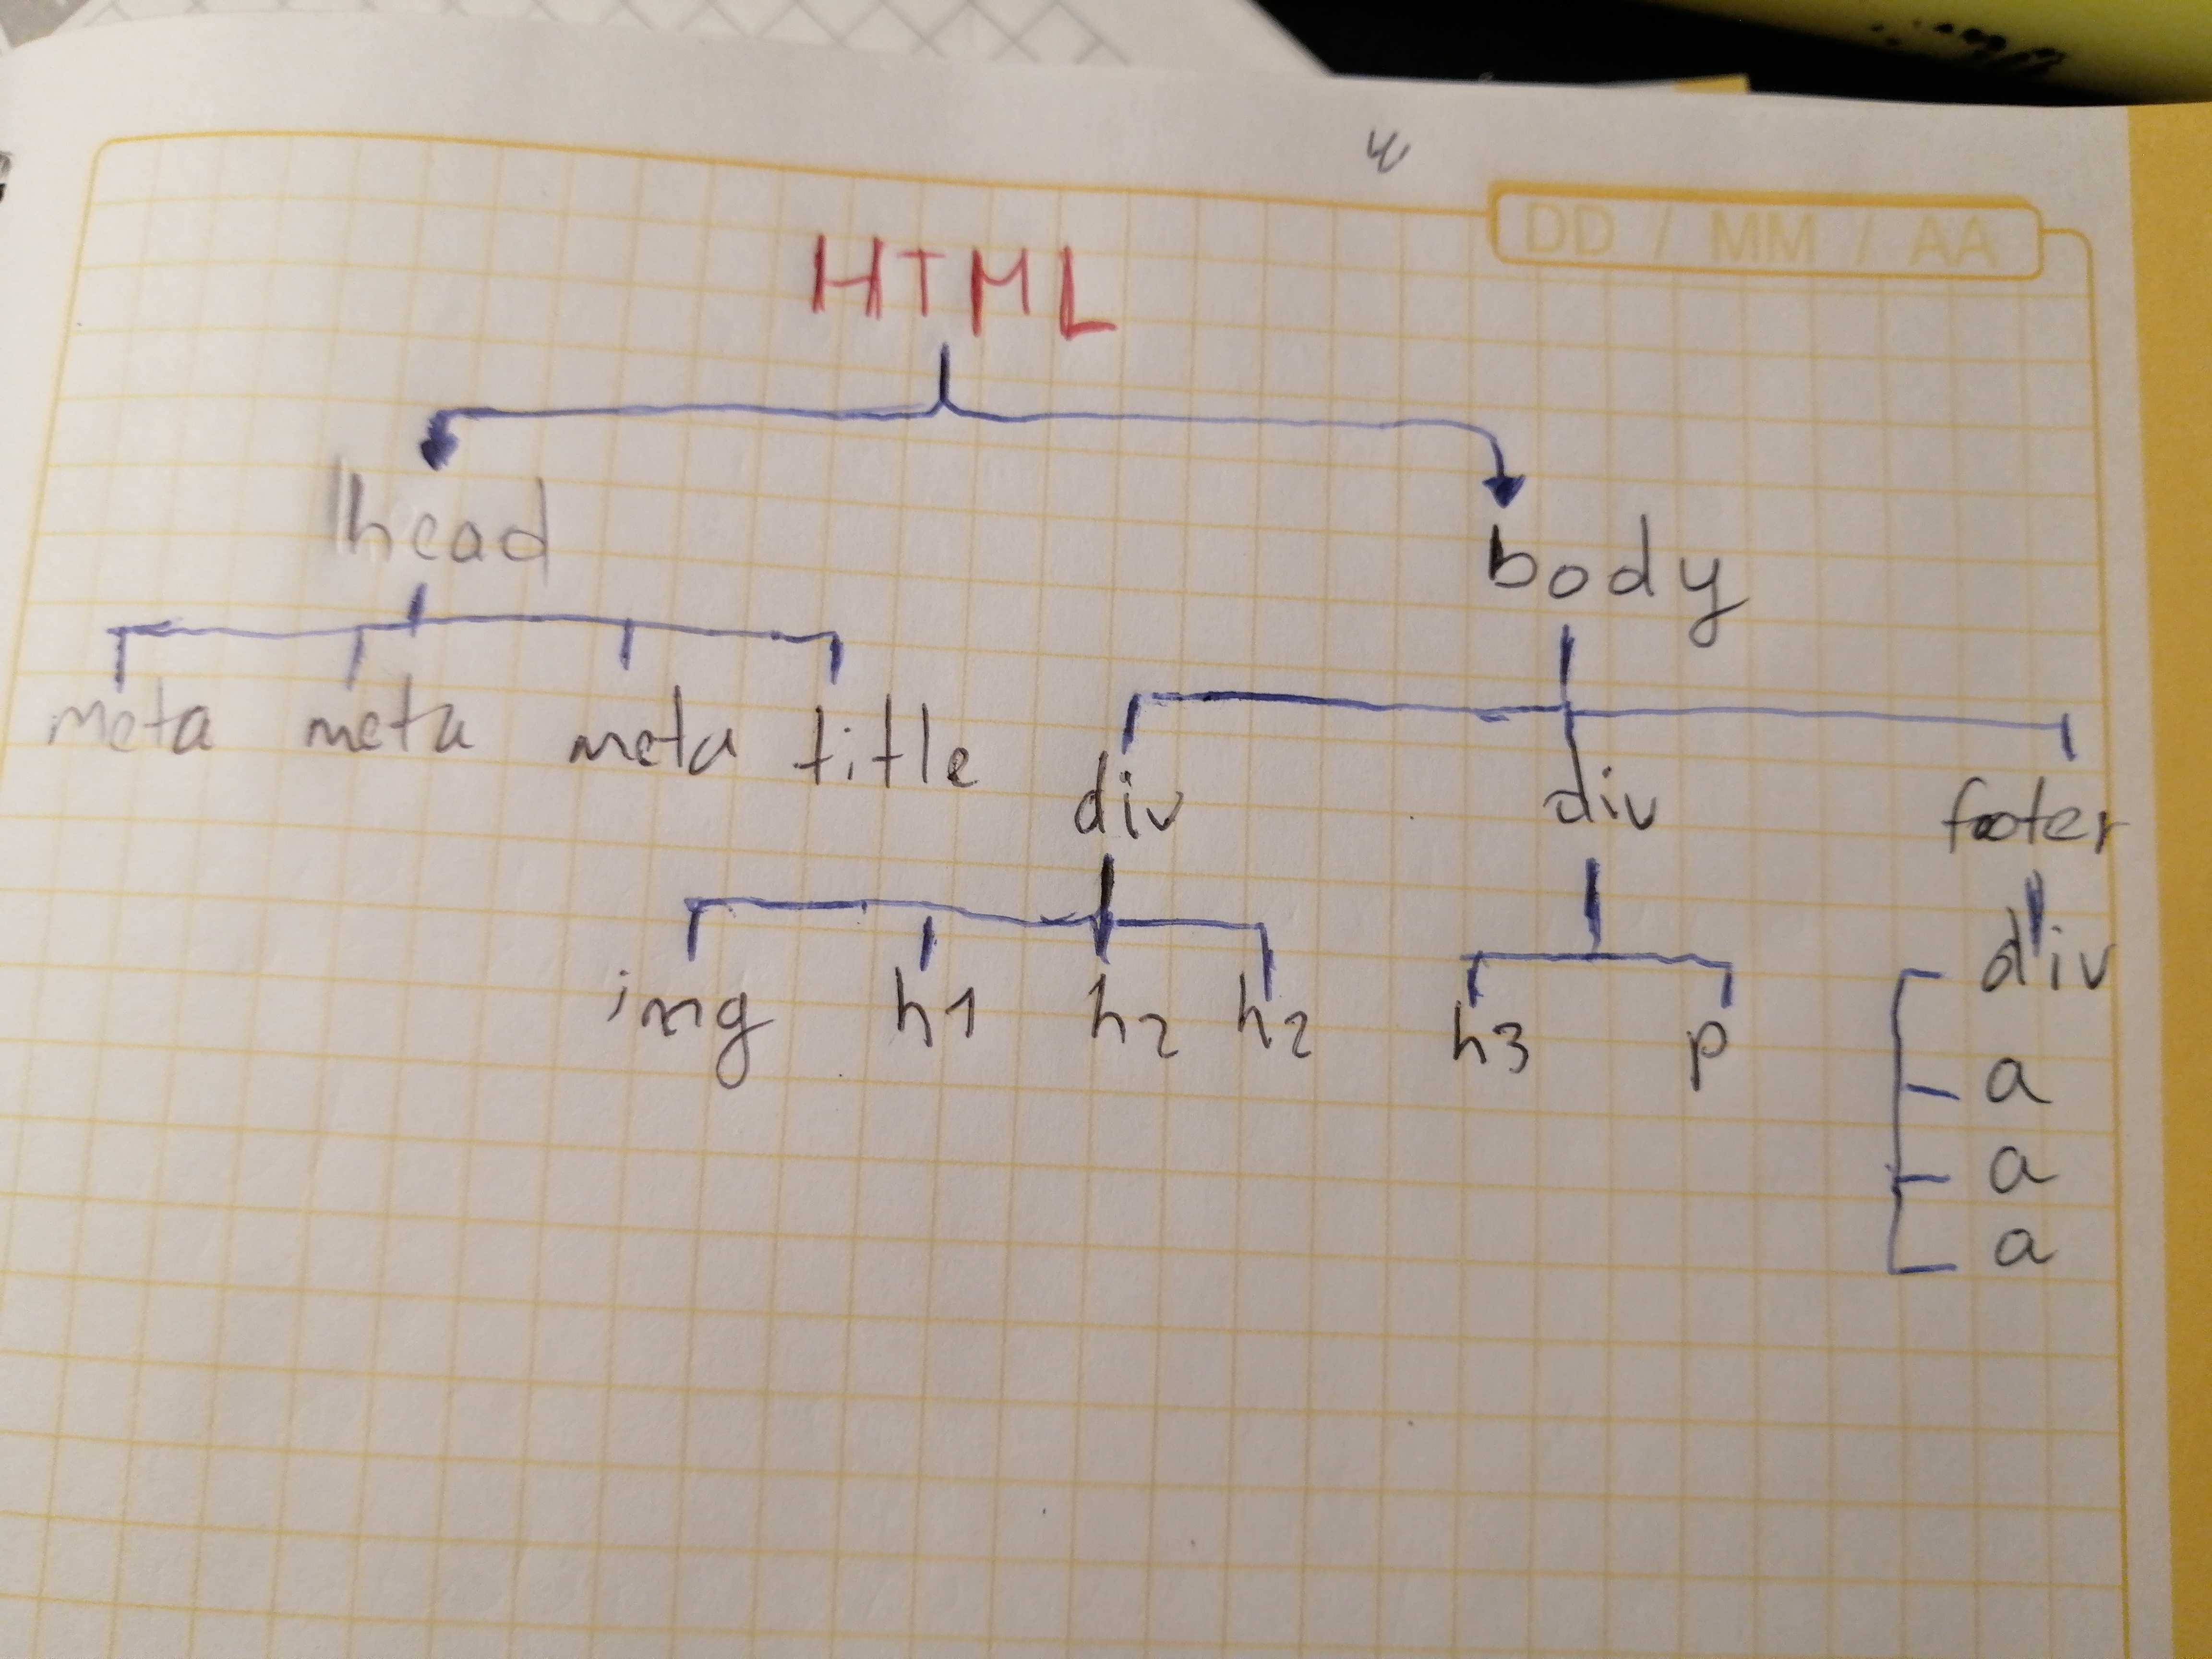 DD / MM / AA
HTML
head
body
meta meta meta title
div div footer
img h1 h2 h2 h3 p div
a
a
a